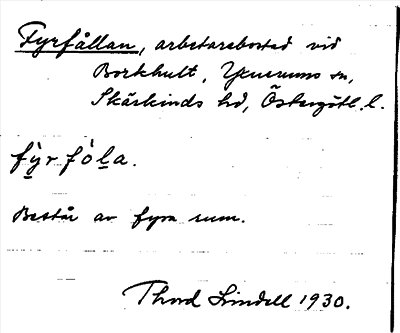 Fyrfållan, arbetarebostad vid
Borkhult, Yxnerums sn,
Skärkinds hd, Östergötl. l.
fỳ̱r fó̀ḻa.
Består av fyra rum.
Thord Lindell 1930.